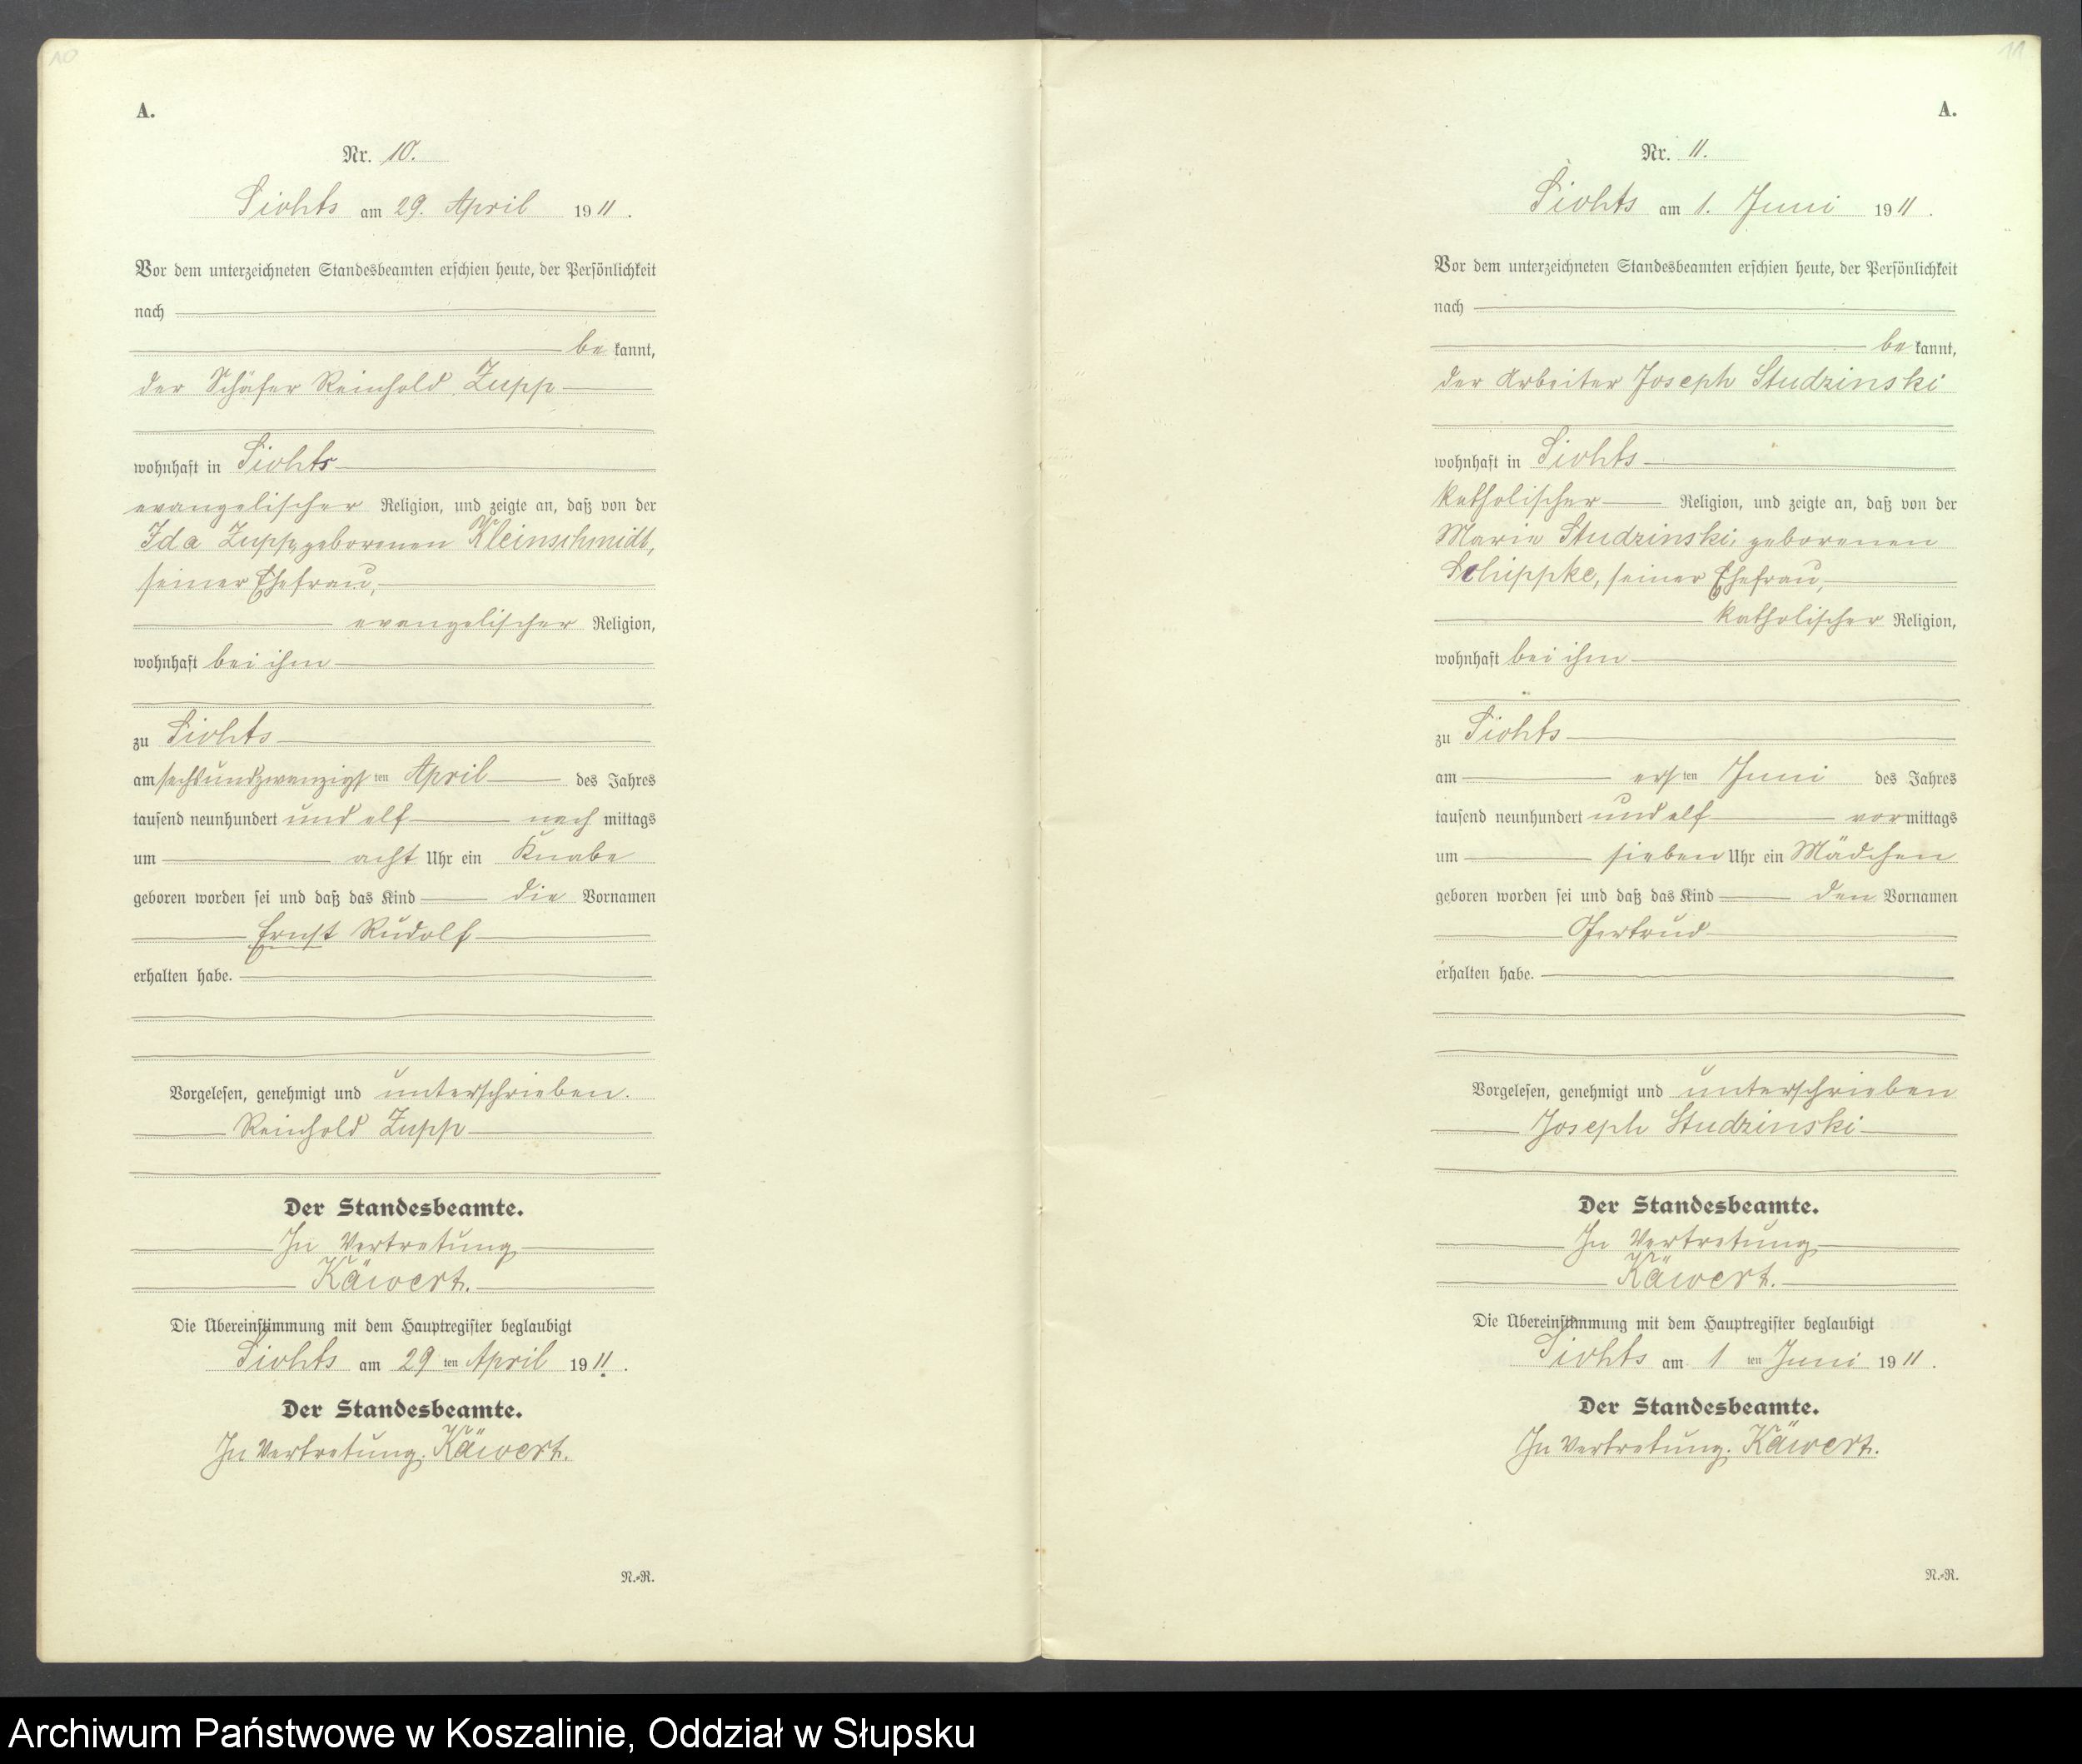 10
A.
Nr. 10.
Siohts am 29. April 1911.
Vor dem unterzeichneten Standesbeamten erschien heute, der Persönlichkeit
nach
be kannt,
der Schäfer Reinhold Zupp
wohnhaft in Siohts
evangelischer Religion, und zeigte an, daß von der
Ida Zupp, geborenen Kleinschmidt,
seiner Ehefrau,
evangelischer Religion,
wohnhaft bei ihm
zu Siohts
am sechsundzwanzigsten April des Jahres
tausend neunhundert und elf nach mittags
um acht Uhr ein Knabe
geboren worden sei und daß das Kind die Vornamen
Ernst Rudolf
erhalten habe.
Vorgelesen, genehmigt und unterschrieben.
Reinhold Zupp
Der Standesbeamte.
In Vertretung
Käwert.
Die Übereinstimmung mit dem Hauptregister beglaubigt
Siohts am 29 ten April 1911.
Der Standesbeamte.
In Vertretung. Käwert.
N.=R.
11
A.
Nr. 11.
Siohts am 1. Juni 1911.
Vor dem unterzeichneten Standesbeamten erschien heute, der Persönlichkeit
nach
be kannt,
der Arbeiter Joseph Studzinski
wohnhaft in Siohts
katholischer Religion, und zeigte an, daß von der
Marie Studzinski, geborenen
Schippke, seiner Ehefrau,
katholischer Religion,
wohnhaft bei ihm
zu Siohts
am ersten Juni des Jahres
tausend neunhundert und elf vormittags
um sieben Uhr ein Mädchen
geboren worden sei und daß das Kind den Vornamen
Gertrud
erhalten habe.
Vorgelesen, genehmigt und unterschrieben
Joseph Studzinski
Der Standesbeamte.
In Vertretung
Käwert.
Die Übereinstimmung mit dem Hauptregister beglaubigt
Siohts am 1 ten Juni 1911.
Der Standesbeamte.
In Vertretung. Käwert.
N.=R.
Archiwum Państwowe w Koszalinie, Oddział w Słupsku